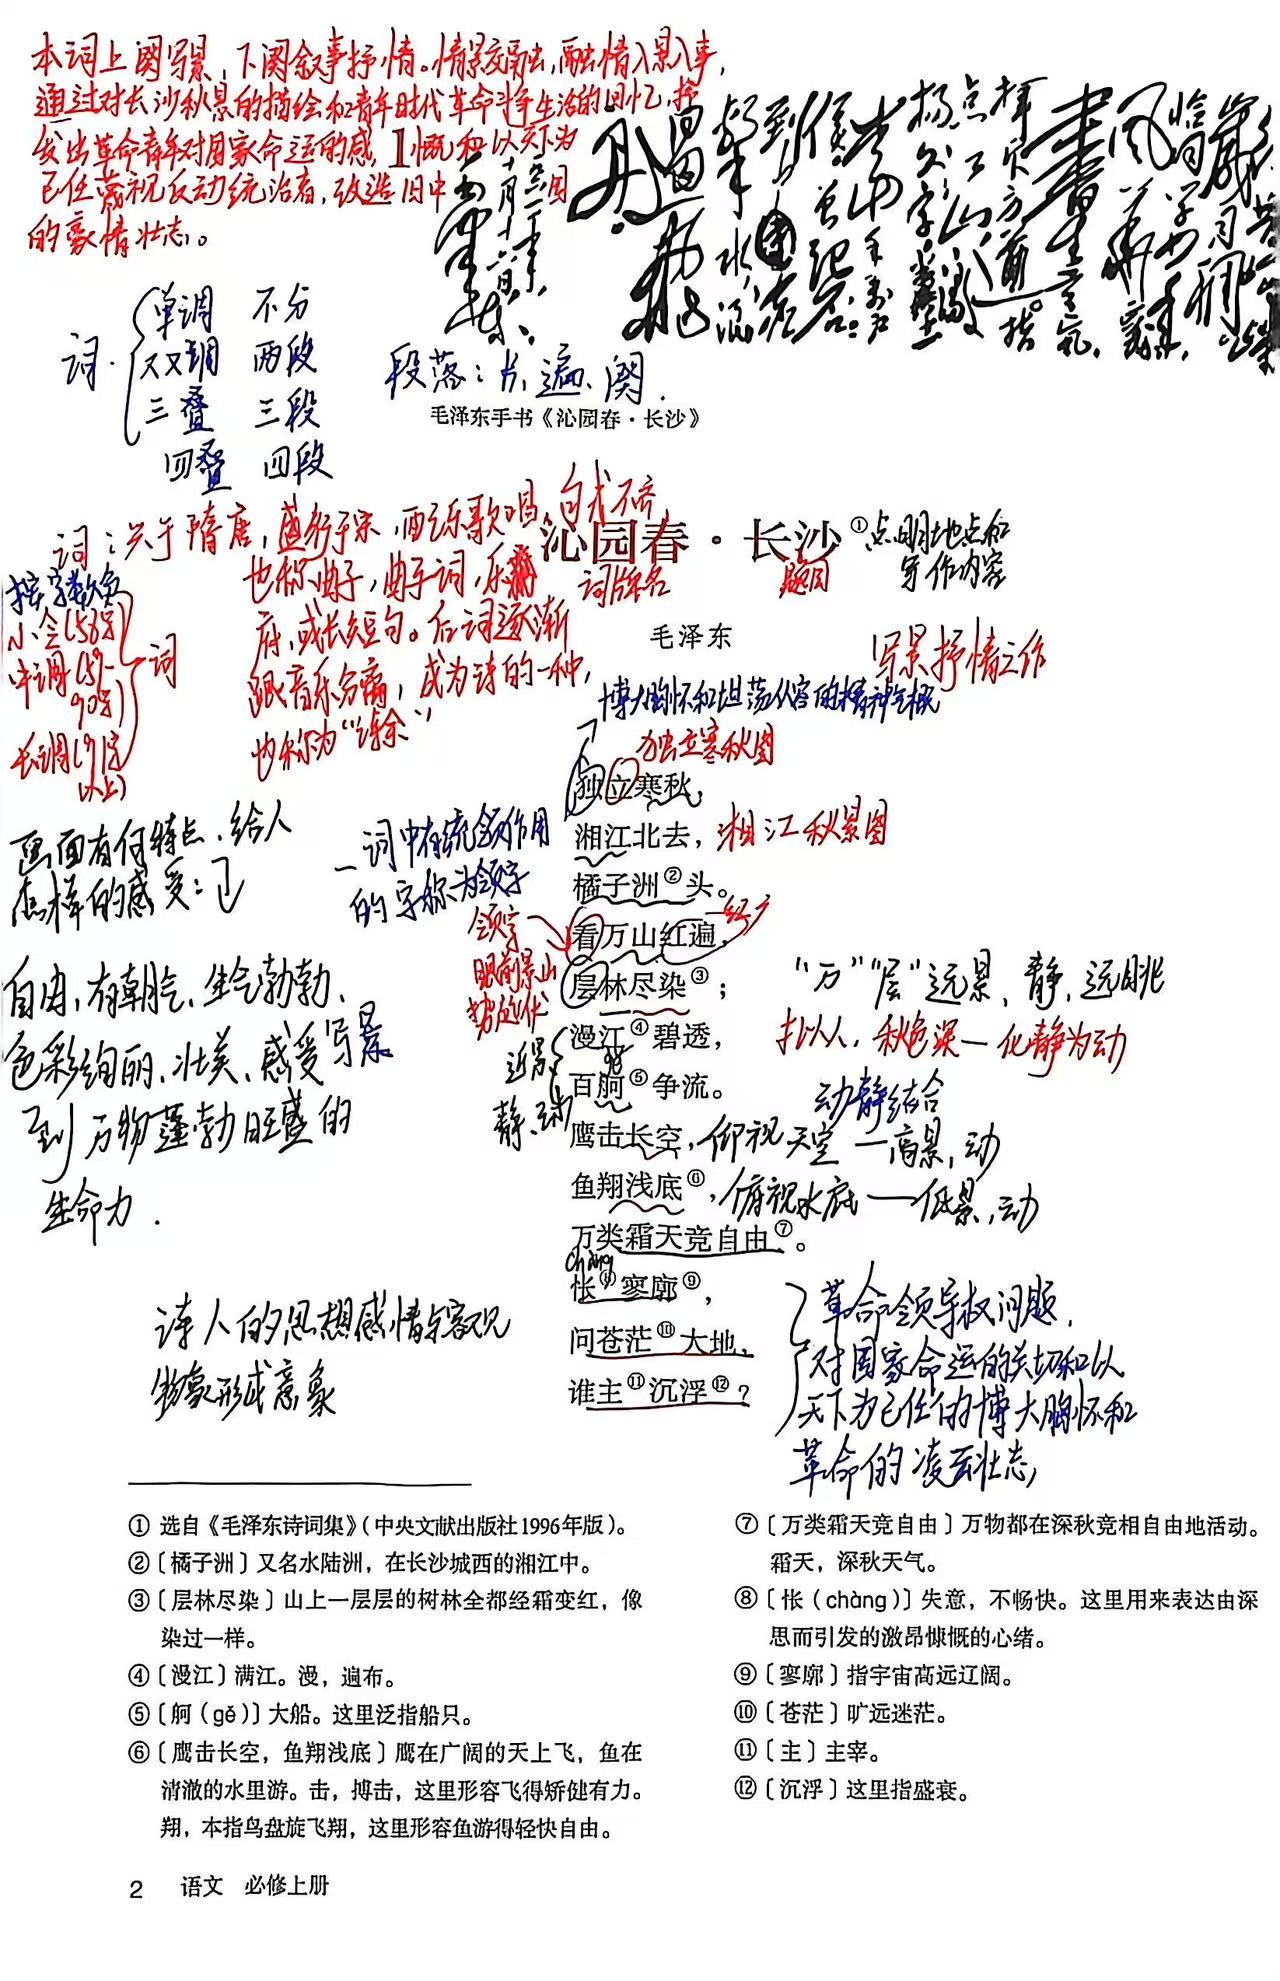 本词上阕写景，下阕叙事抒情。情景交融，融情入景入事，
通过对长沙秋景的描绘和青年时代革命斗争生活的回忆，抒
发出革命青年对国家命运的感慨和以天下为
己任蔑视反动统治者，改造旧中国
的豪情壮志。
1
词.
单调 不分
双调 两段
三叠 三段
四叠 四段
段落：片、遍、阕.
毛泽东手书《沁园春·长沙》
词：兴于隋唐，盛行于宋，
也称曲子，曲子词，乐
府，或长短句。后词逐渐
跟音乐分离，成为诗的一种，
也称为“诗余”
按字数分
小令(58字)
中调(59-
90字)
长调(91字
以上)
词
沁园春·长沙①
词牌名
题目
点明地点和
写作内容
毛泽东
写景抒情之作
博大胸怀和坦荡从容的精神气概
独立寒秋图
独立寒秋，
湘江北去，
湘江秋景图
橘子洲②头。
看万山红遍，
层林尽染③；
漫江④碧透，
百舸⑤争流。
鹰击长空，
仰视天空—高景，动
鱼翔浅底⑥，
俯视水底——低景，动
万类霜天竞自由⑦。
chàng
怅⑧寥廓⑨，
问苍茫⑩大地，
谁主⑪沉浮⑫？
画面有何特点，给人
怎样的感受：
自由，有朝气，生气勃勃、
色彩绚丽、壮美、感受
写景
到万物蓬勃旺盛的
生命力.
一词中有统领作用
的字称为领字
领字
眼前景山
近景
“万”“层”远景、静，远眺
拟人，秋色深—化静为动
动静结合
诗人的思想感情与客观
物象形成意象
革命领导权问题.
对国家命运的关切和以
天下为己任的博大胸怀和
革命的凌云壮志
① 选自《毛泽东诗词集》（中央文献出版社1996年版）。
②〔橘子洲〕又名水陆洲，在长沙城西的湘江中。
③〔层林尽染〕山上一层层的树林全都经霜变红，像
染过一样。
④〔漫江〕满江。漫，遍布。
⑤〔舸（gě）〕大船。这里泛指船只。
⑥〔鹰击长空，鱼翔浅底〕鹰在广阔的天上飞，鱼在
清澈的水里游。击，搏击，这里形容飞得矫健有力。
翔，本指鸟盘旋飞翔，这里形容鱼游得轻快自由。
⑦〔万类霜天竞自由〕万物都在深秋竞相自由地活动。
霜天，深秋天气。
⑧〔怅（chàng）〕失意，不畅快。这里用来表达由深
思而引发的激昂慷慨的心绪。
⑨〔寥廓〕指宇宙高远辽阔。
⑩〔苍茫〕旷远迷茫。
⑪〔主〕主宰。
⑫〔沉浮〕这里指盛衰。
2 语文 必修上册